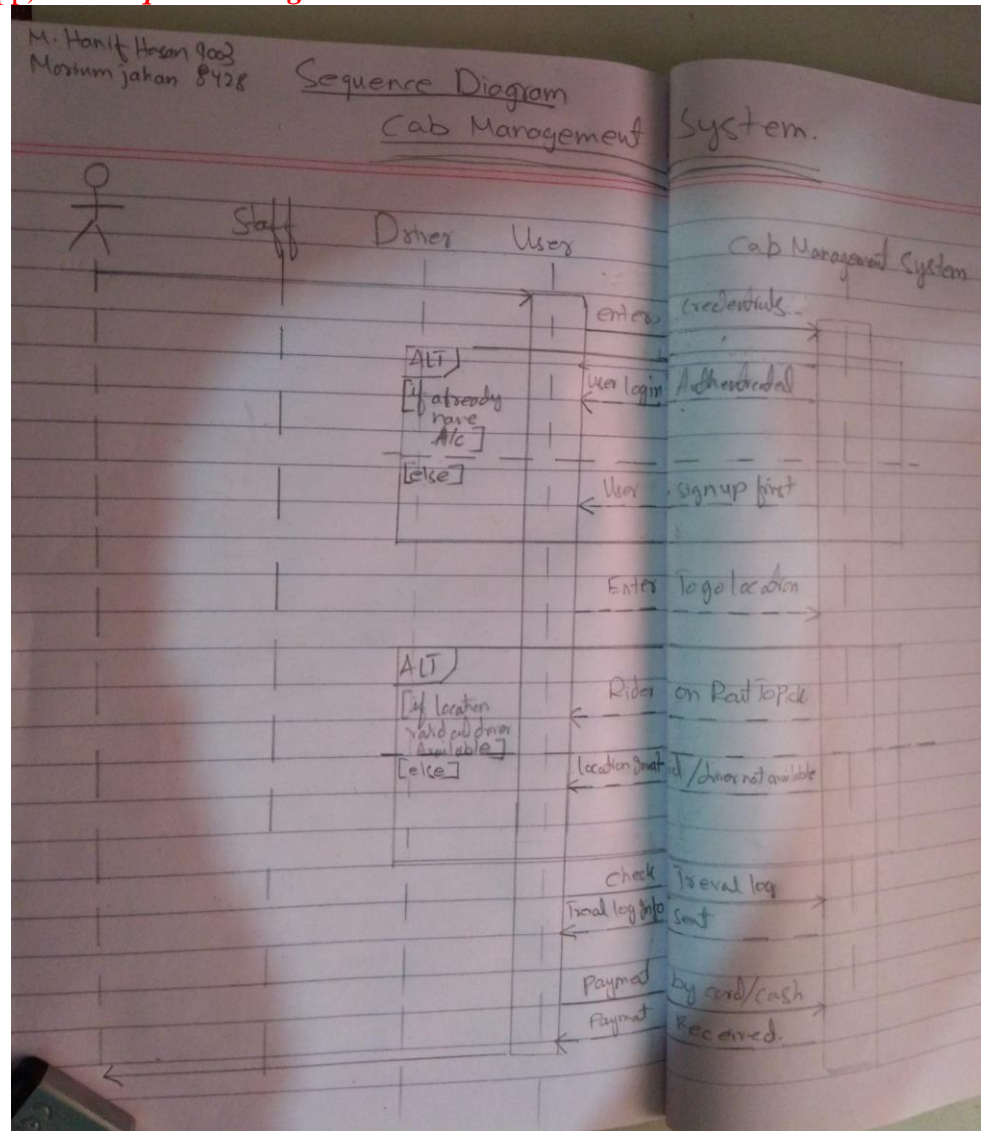 M. Hanif Hasan 9003
Morium jahan 8428
Sequence Diagram
Cab Management System.
Staff Driver User Cab Management System
enter credentials
ALT
[if already have A/c]
User login Authenticated
[else]
User signup first
Enter To go location
ALT
[if location valid and driver Available]
Rider on Rout To pick
[else]
location / driver not available
check Treval log
Treval log Info sent
Payment by card/cash
Payment Received.